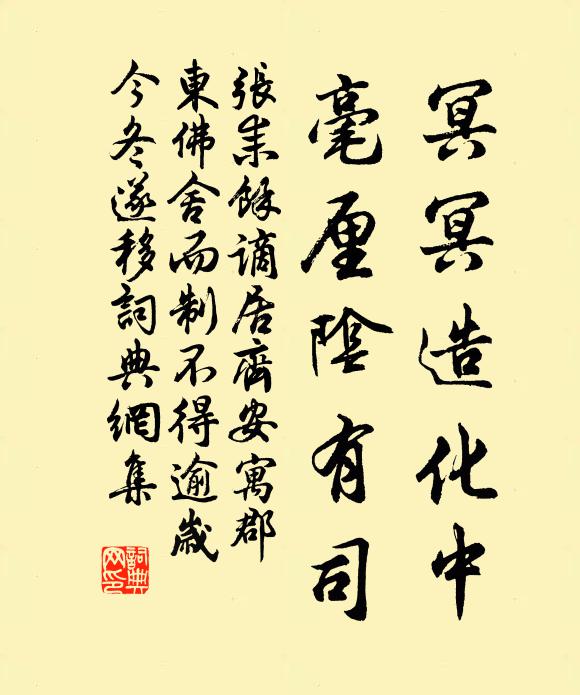 冥冥造化中
毫厘陰有司
張耒餘謫居齊安寓郡
東佛舍而制不得逾歲
今冬遂移詞典網集
詞典网印